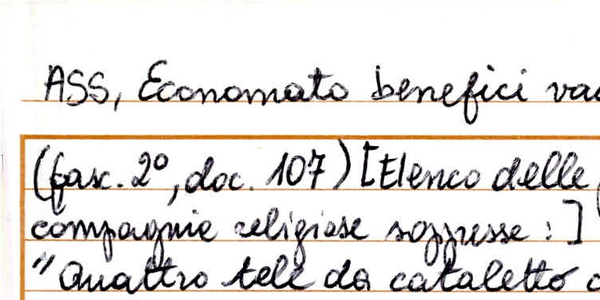 ASS, Economato benefici vac
(fasc. 2º, doc. 107) [Elenco delle
compagnie religiose soppresse:]
"Quattro tele da cataletto